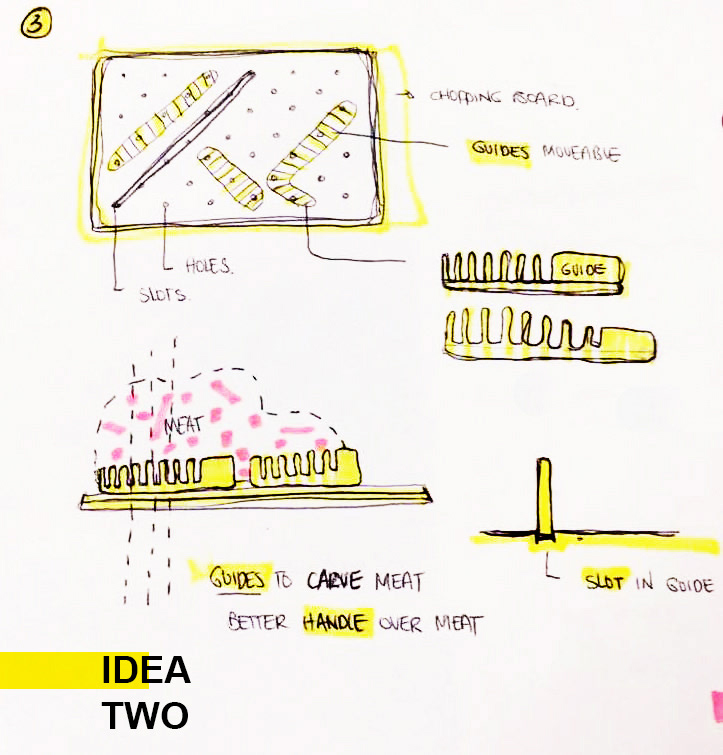 3
CHOPPING BOARD.
GUIDES MOVEABLE
HOLES.
SLOTS.
GUIDE
MEAT
GUIDES TO CARVE MEAT
BETTER HANDLE OVER MEAT
SLOT IN GUIDE
IDEA
TWO